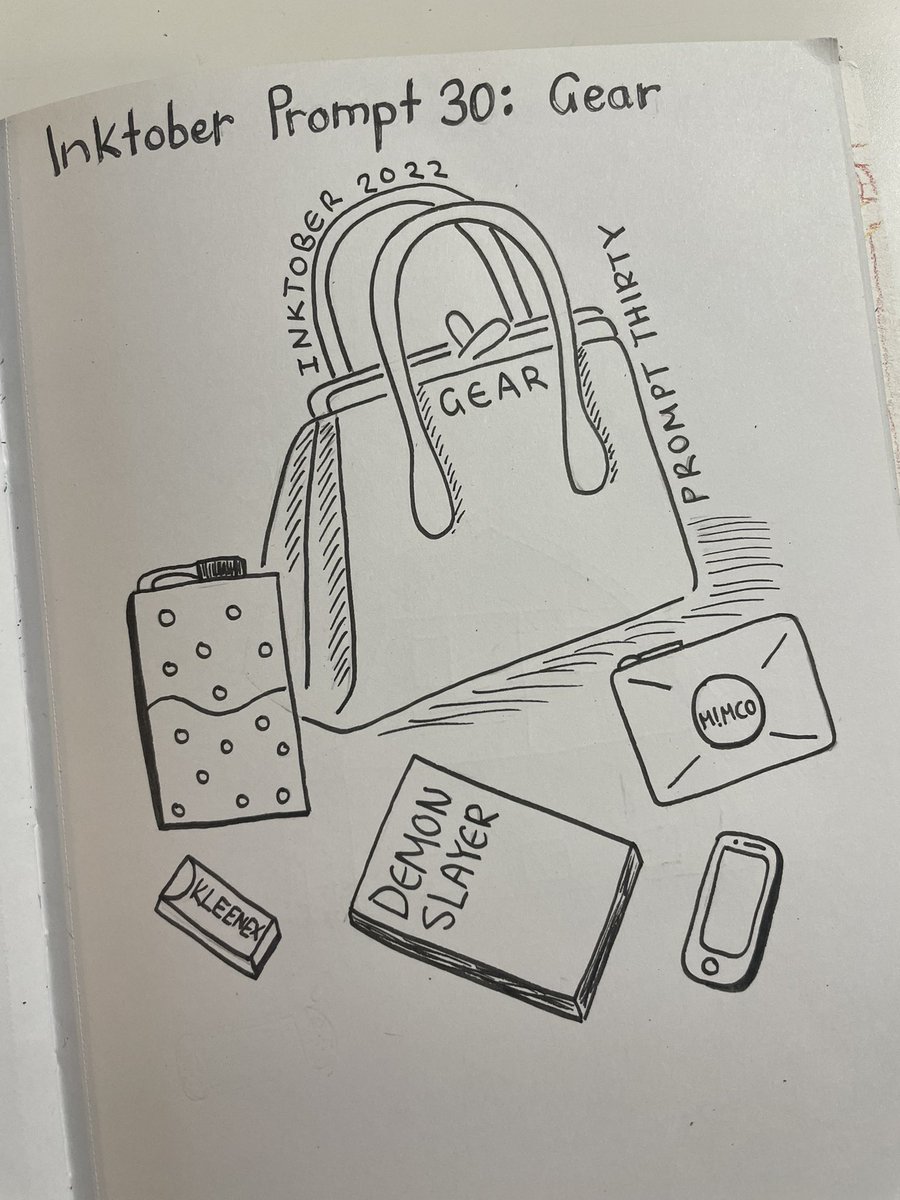 Inktober Prompt 30: Gear
INKTOBER 2022
PROMPT THIRTY
GEAR
M!MCO
DEMON
SLAYER
KLEENEX